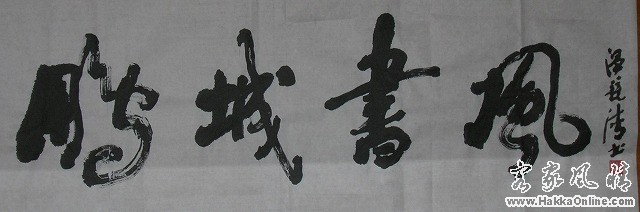 鹏城書風
客家风情
www.HakkaOnline.com